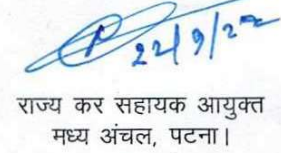 22/9/22
राज्य कर सहायक आयुक्त
मध्य अंचल, पटना।